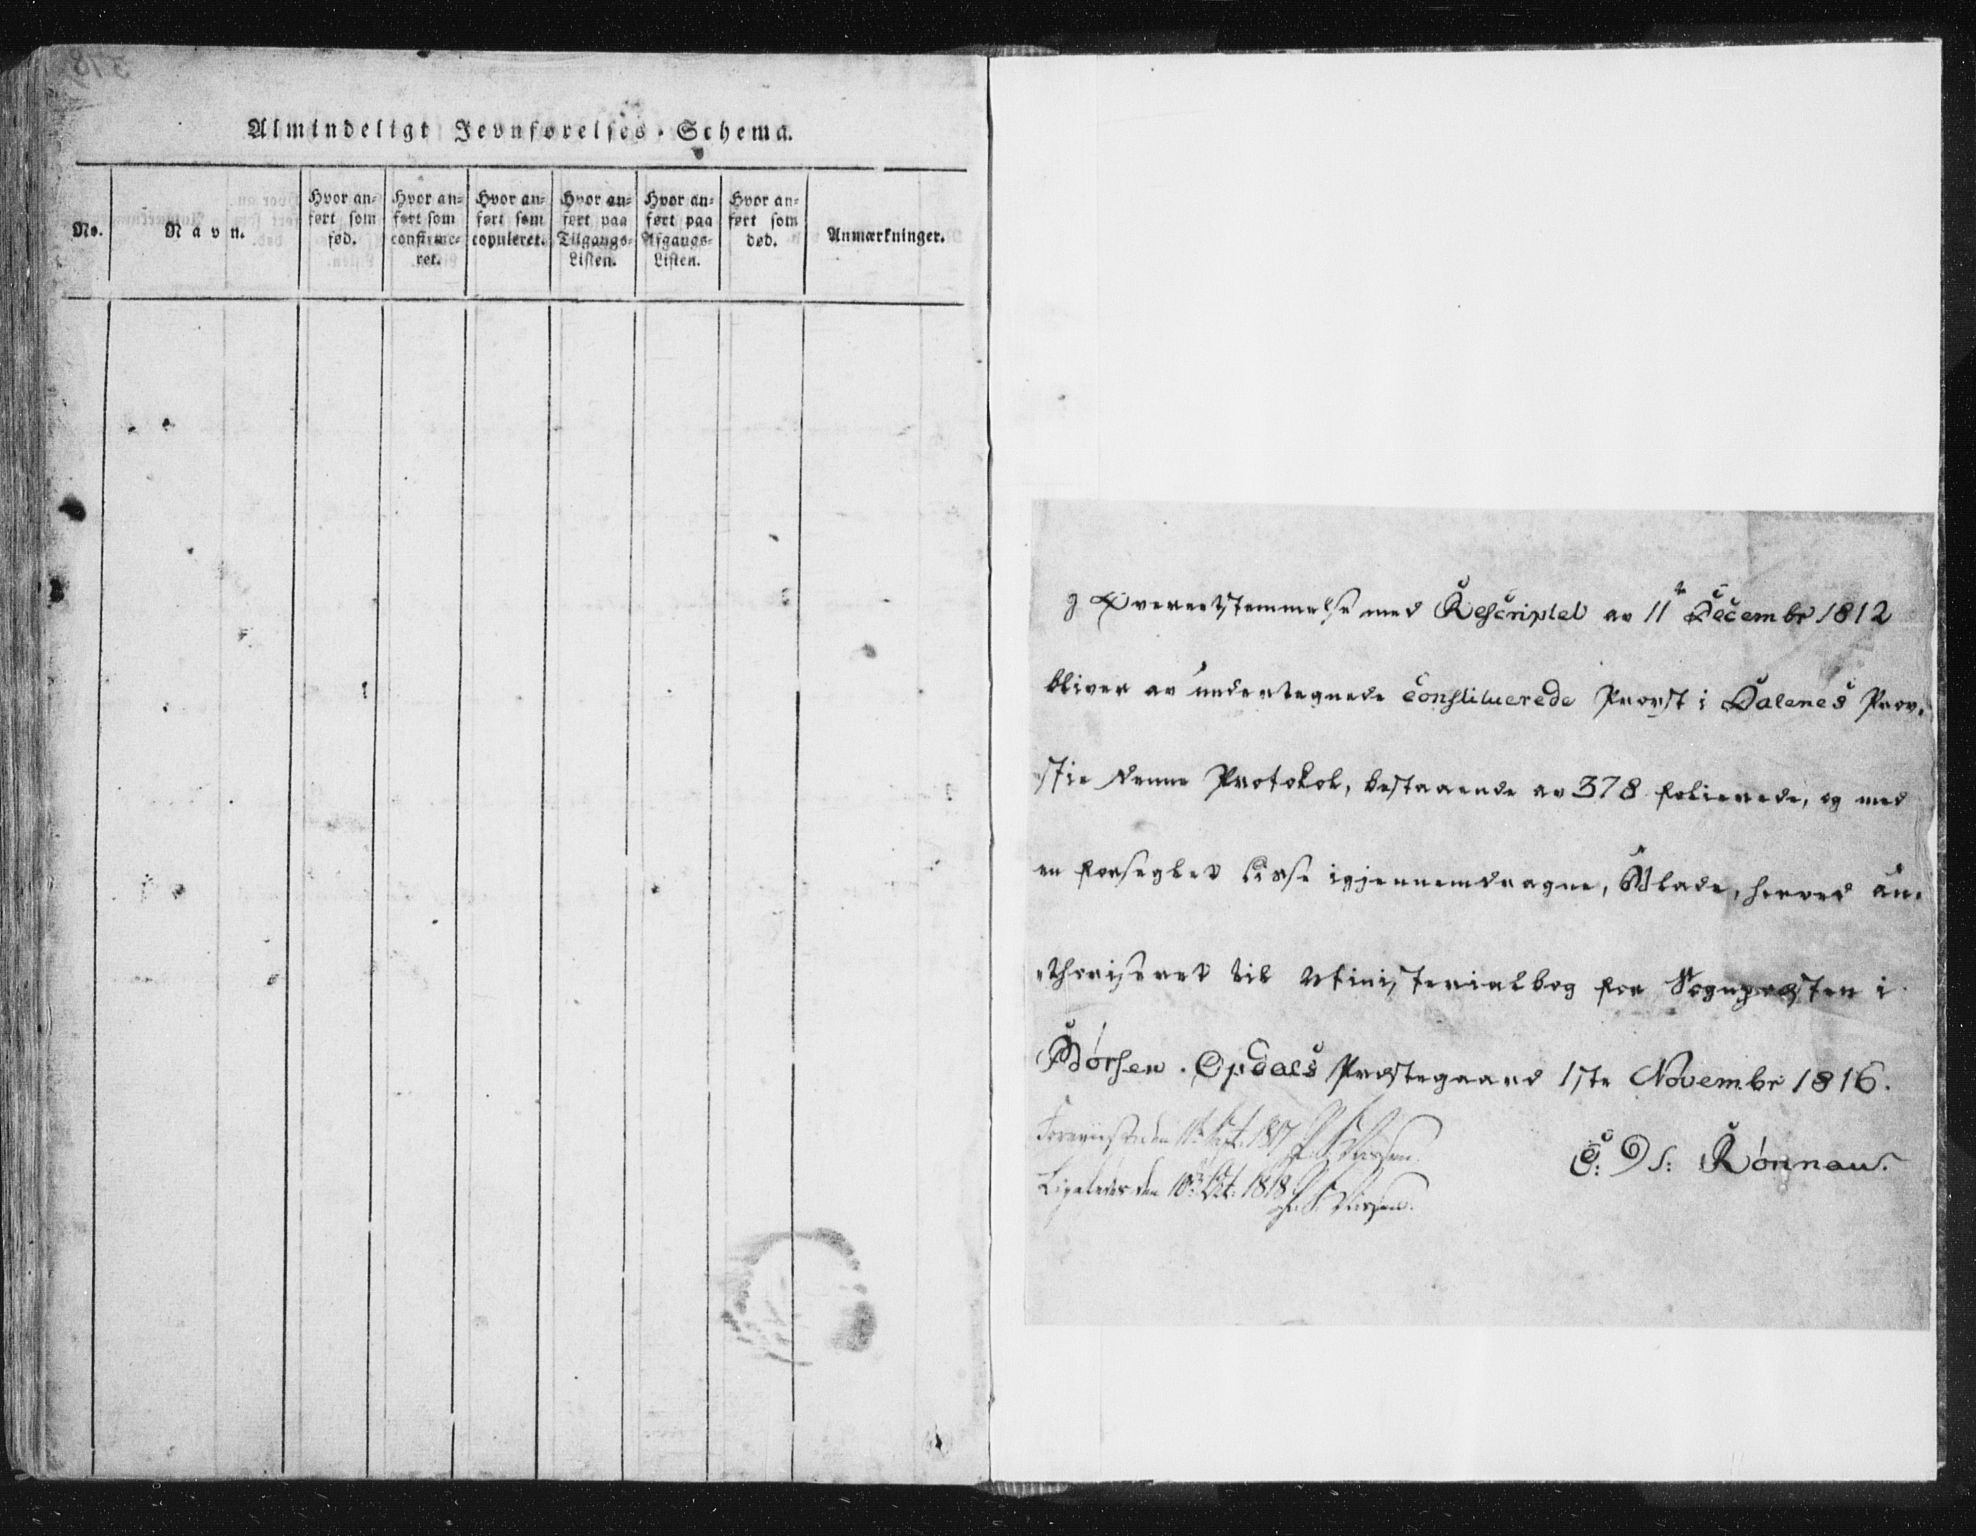 378
Almindeligt Jevnførelses-Schema.
No.
Navn.
Hvor an-
ført som
fød.
Hvor an-
ført som
confirme-
ret.
Hvor an-
ført som
copuleret.
Hvor an-
ført paa
Tilgangs-
Listen.
Hvor an-
ført paa
Afgangs-
Listen.
Hvor an-
ført som
død.
Anmærkninger.
I Overeenstemmelse med Rescriptet av 11te Decembr 1812
bliver av undertegnede constituerede Provst i Dalenes Prov-
stie denne Protokol, bestaaende av 378 folierede, og med
en forseglet Lisse igjennemdragne, Blade, herved au-
thoriseret til Ministerialbog for Sognpræsten i
Børsen. Opdals Præstegaard 1ste Novembr 1816.
Rønnau.
Foreviist den 11te Sept. 1817
Ligeledes den 10de Oct. 1818